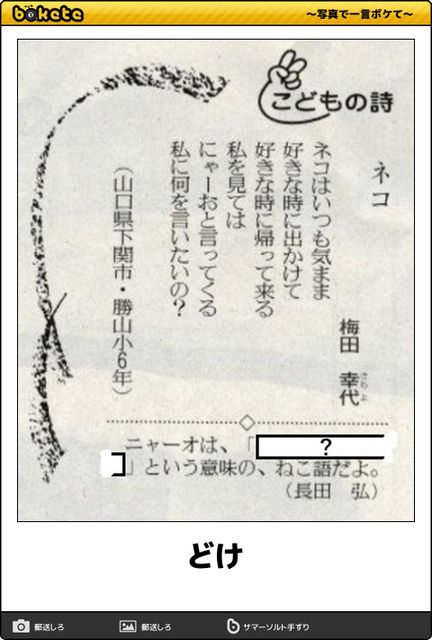 bokete
～写真で一言ボケて～
こどもの詩
ネコ
梅田 幸代
さちよ
ネコはいつも気まま
好きな時に出かけて
好きな時に帰って来る
私を見ては
にゃーおと言ってくる
私に何を言いたいの？
（山口県下関市・勝山小6年）
ニャーオは、「？
」という意味の、ねこ語だよ。
（長田 弘）
どけ
郵送しろ
郵送しろ
サマーソルト手すり